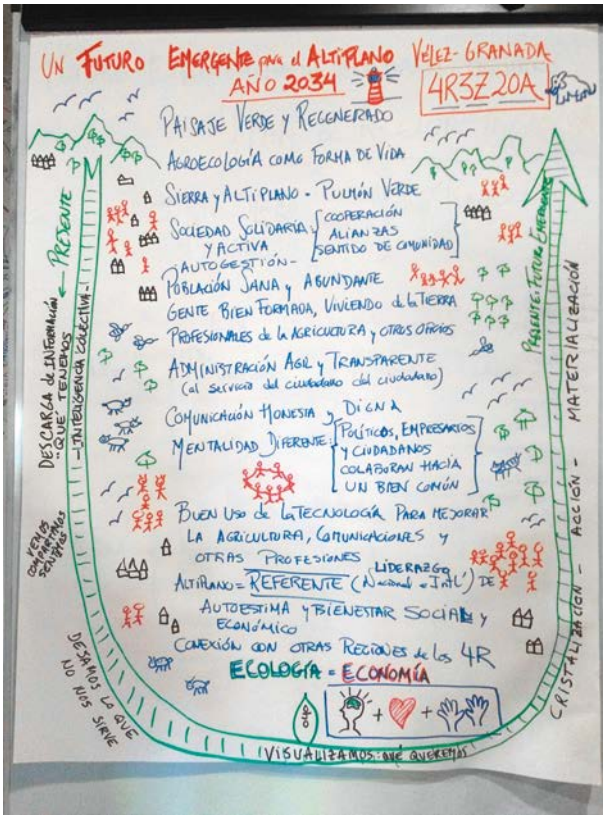 UN FUTURO EMERGENTE para el ALTIPLANO VÉLEZ-GRANADA
AÑO 2034
4R3Z20A
PAISAJE VERDE Y REGENERADO
AGROECOLOGÍA COMO FORMA DE VIDA
SIERRA y ALTIPLANO - PULMÓN VERDE
SOCIEDAD SOLIDARIA: COOPERACIÓN
Y ACTIVA ALIANZAS
SENTIDO DE COMUNIDAD
-AUTOGESTIÓN-
POBLACIÓN SANA y ABUNDANTE
GENTE BIEN FORMADA, VIVIENDO de la TIERRA
PROFESIONALES de la AGRICULTURA y OTROS OFICIOS
ADMINISTRACIÓN AGIL y TRANSPARENTE
(al servicio del ciudadano del ciudadano)
COMUNICACIÓN HONESTA y DIGNA
MENTALIDAD DIFERENTE: POLÍTICOS, EMPRESARIOS
Y CIUDADANOS
COLABORAN HACIA
UN BIEN COMÚN
BUEN USO de la TECNOLOGÍA PARA MEJORAR
LA AGRICULTURA, COMUNICACIONES y
OTRAS PROFESIONES
LIDERAZGO
ALTIPLANO = REFERENTE (Nacional e Intl') DE
AUTOESTIMA y BIENESTAR SOCIAL y
ECONÓMICO
CONEXIÓN CON OTRAS REGIONES de los 4R
ECOLOGÍA = ECONOMÍA
+ +
OHO
← PRESENTE
DESCARGA de INFORMACIÓN
"QUÉ" TENEMOS
-INTELIGENCIA COLECTIVA-
VEMOS
COMPARTIMOS
SENTIMOS
DEJAMOS LO QUE
NO NOS SIRVE
VISUALIZAMOS: QUÉ QUEREMOS
CRISTALIZACIÓN - ACCIÓN - MATERIALIZACIÓN
FUTURO EMERGENTE